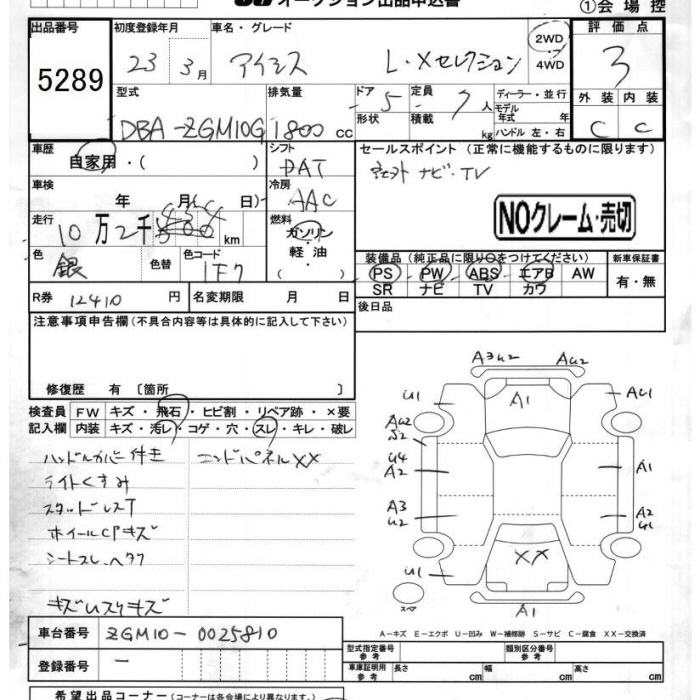 オークション出品申込書
①会場控
出品番号 初度登録年月 車名・グレード 評価点
5289 23年 3月 アイシス L・Xセレクション 2WD・4WD 3
型式 排気量 ドア 5 定員 7人 ディーラー・並行 外装 内装
形状 積載 kg モデル年式 年
DBA-ZGM10G 1800cc ハンドル 左・右 C C
車歴 シフト セールスポイント (正常に機能するものに限ります)
自家用・( ) DAT ナビ・TV
車検 年 月( 日) 冷房 AAC
NOクレーム・売切
走行 10万2千 km 燃料 ガソリン・軽油・( )
色 銀 色替 色コード 1F7
装備品 (純正品に限り○をつけてください) 新車保証書
PS PW ABS エアB AW 有・無
SR ナビ TV カワ
R券 12410円 名変期限 月 日 後日品
注意事項申告欄 (不具合内容等は具体的に記入して下さい)
修復歴 有 〔箇所 〕
検査員 FW キズ・飛石・ヒビ割・リペア跡・×要
記入欄 内装 キズ・汚レ・コゲ・穴・スレ・キレ・破レ
ハンドルカバー付き エンドパネルXX
ライトくすみ
スタッドレスT
ホイールCPキズ
シートスレ、ヘタク
A3U2 AU2
U1 A1 AU1
AU2
S2
U4
A2 A1
A3
U2 A2
U1
XX
U1
スペア A1
A-キズ E-エクボ U-凹み W-補修跡 S-サビ C-腐食 XX-交換済
車台番号 ZGM10-0025810
登録番号 -
型式指定番号 参考 類別区分番号 参考
車庫証明用 参考 長さ cm 幅 cm 高さ cm
希望出品コーナー (コーナーは各会場により異なります。)